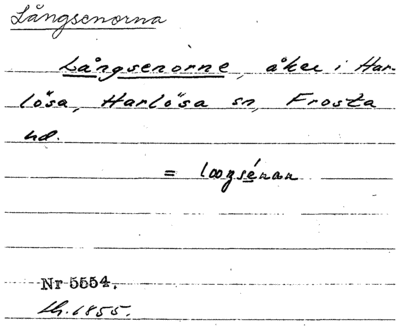 Långsenorna
Långsenorne, åker i Har-
lösa, Harlösa sn, Frosta
hd.
=
Nr 5554.
Lh. 1855.